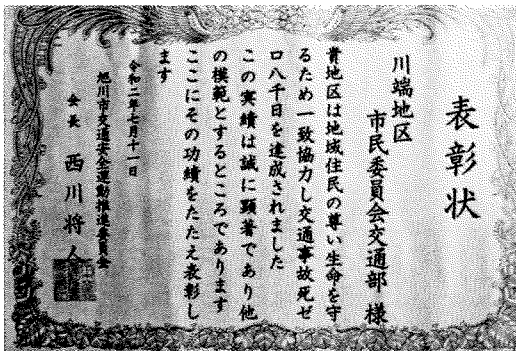 表彰状
川端地区
市民委員会交通部 様
貴地区は地域住民の尊い生命を守
るため一致協力し交通事故死ゼ
ロ八千日を達成されました
この実績は誠に顕著であり他
の模範とするところであります
ここにその功績をたたえ表彰し
ます
令和二年七月十一日
旭川市交通安全運動推進委員会
会長 西川将人